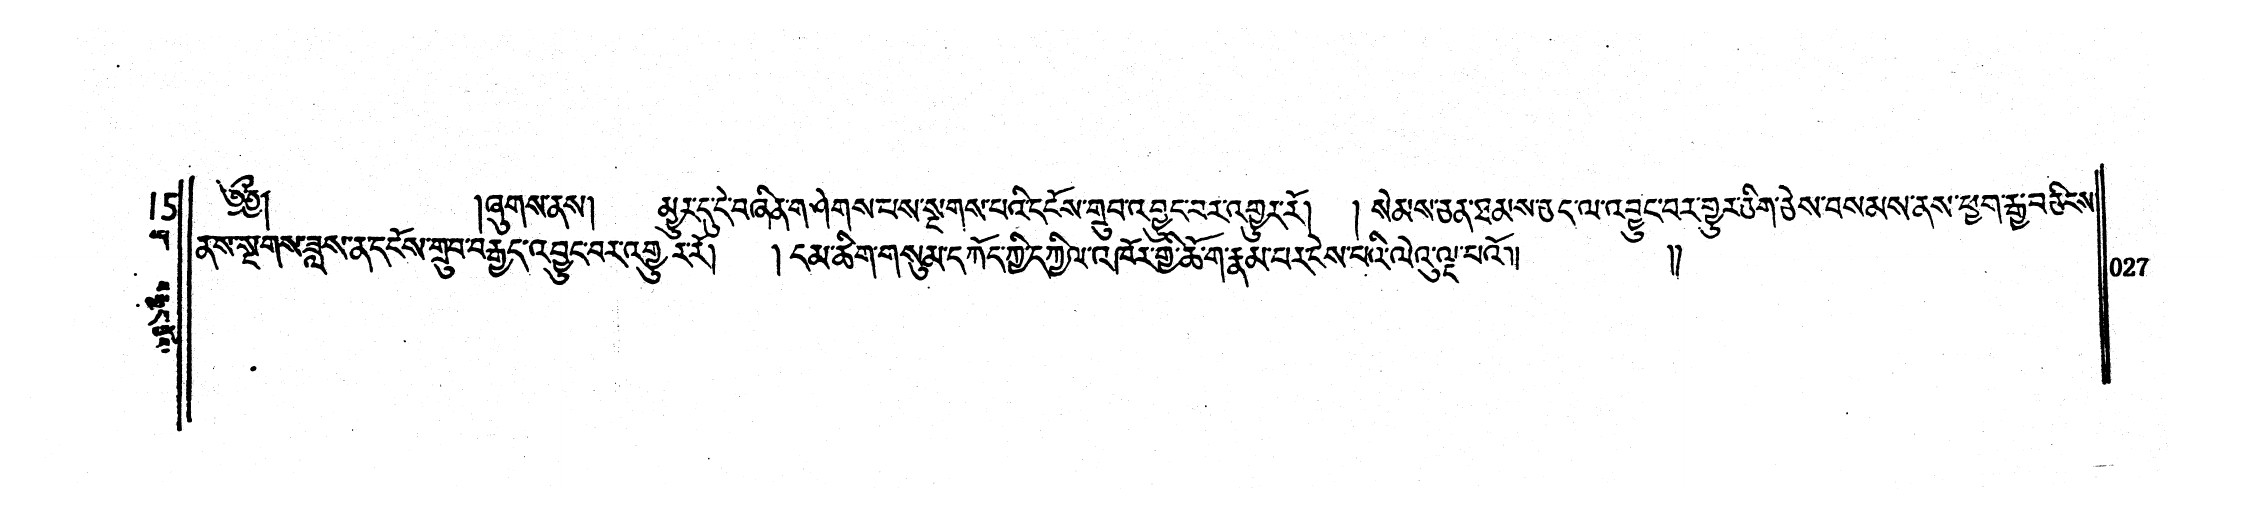 ༄༅། །ཞུགས་ནས། མྱུར་དུ་དེ་བཞིན་གཤེགས་པས་སྔགས་པའི་དངོས་གྲུབ་འབྱུང་བར་འགྱུར་རོ། །སེམས་ཅན་ཐམས་ཅད་ལ་འབྱུང་བར་གྱུར་ཅིག་ཅེས་བསམས་ནས་ཕྱག་རྒྱ་བཅིངས་
ནས་སྔགས་བཟླས་ན་དངོས་གྲུབ་བརྒྱད་འབྱུང་བར་འགྱུར་རོ། །དམ་ཚིག་གསུམ་བཀོད་ཀྱི་དཀྱིལ་འཁོར་གྱི་ཆོ་ག་རྣམ་པར་ངེས་པའི་ལེའུ་ལྔ་པའོ།། །།
15
027